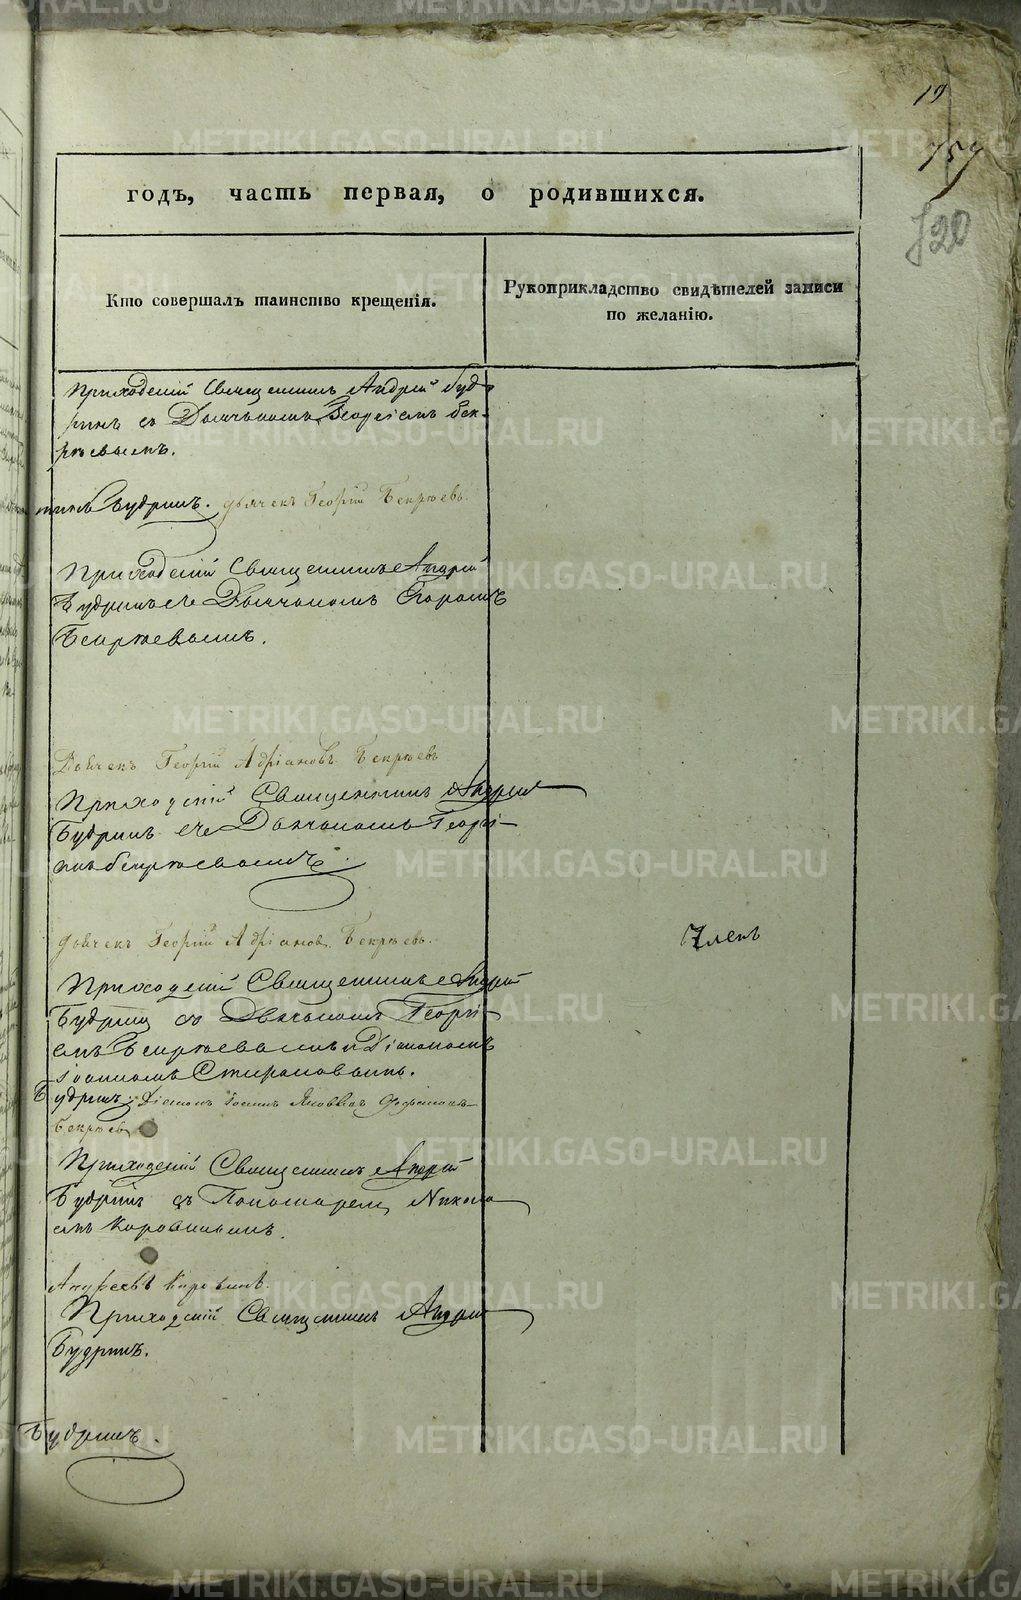 19
757
720
годъ, часть первая, о родившихся.
Кто совершалъ таинство крещенія.
Рукоприкладство свидѣтелей записи
по желанію.
Приходскій Священникъ Андрей Буд-
ринъ съ Дьячькомъ Георгіемъ Бек-
рѣевымъ.
Будринъ. дьячекъ Георгій Бекрѣевъ.
Приходскій Священникъ Андрей
Будринъ съ Дьячкомъ Егоромъ
Бекрѣевымъ.
Дьячекъ Георгій Адріановъ Бекрѣевъ
Приходскій Священникъ Андрей
Будринъ съ Дьячкомъ Георгі-
емъ Бекрѣевымъ.
дьячекъ Георгій Адріановъ Бекрѣевъ.
Членъ
Приходскій Священникъ Андрей
Будринъ съ Дьячькомъ Георгі-
емъ Бекрѣевымъ и Діакономъ
Іоанномъ
Будринъ. Діаконъ Іоаннъ
Бекрѣевъ
Приходскій Священникъ Андрей
Будринъ съ Пономаремъ Никола-
емъ Коровинымъ.
Андреевъ Коровинъ.
Приходскій Священникъ Андрей
Будринъ.
Будринъ.
METRIKI.GASO-URAL.RU